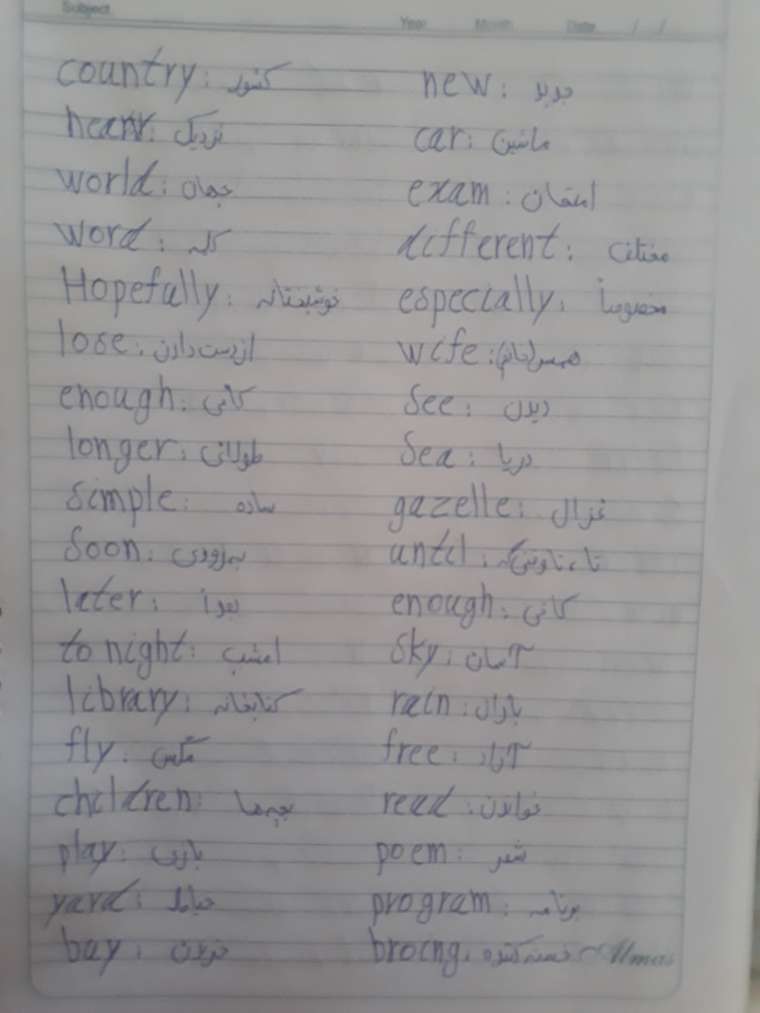 Subject
Year Month Date / /
country: کشور
hearr: نزدیک
world: جهان
word: کلمه
Hopefully: خوشبختانه
lose: از دست دادن
enough: کافی
longer: طولانی
simple: ساده
Soon: به زودی
later: بعدا
to night: امشب
library: کتابخانه
fly: مگس
children: بچه ها
play: بازی
yard: حیاط
bay: خریدن
new: جدید
car: ماشین
exam: امتحان
different: مختلف
especially: مخصوصاً
wife: همسر (خانم)
See: دیدن
Sea: دریا
gazelle: غزال
until: تا، تا وقتی که
enough: کافی
Sky: آسمان
rain: باران
free: آزاد
read: خواندن
poem: شعر
program: برنامه
brocng: خسته کننده
Almas